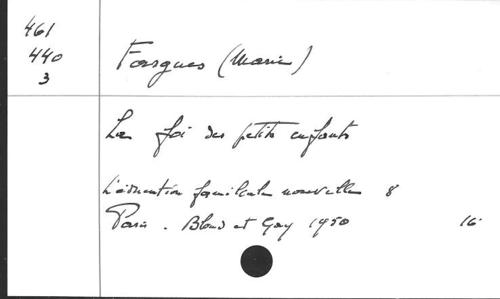 461
440
3
Fargues (Marie)
La foi des petits enfants
L'éducation familiale nouvelle 8
Paris. Bloud et Gay 1950 16